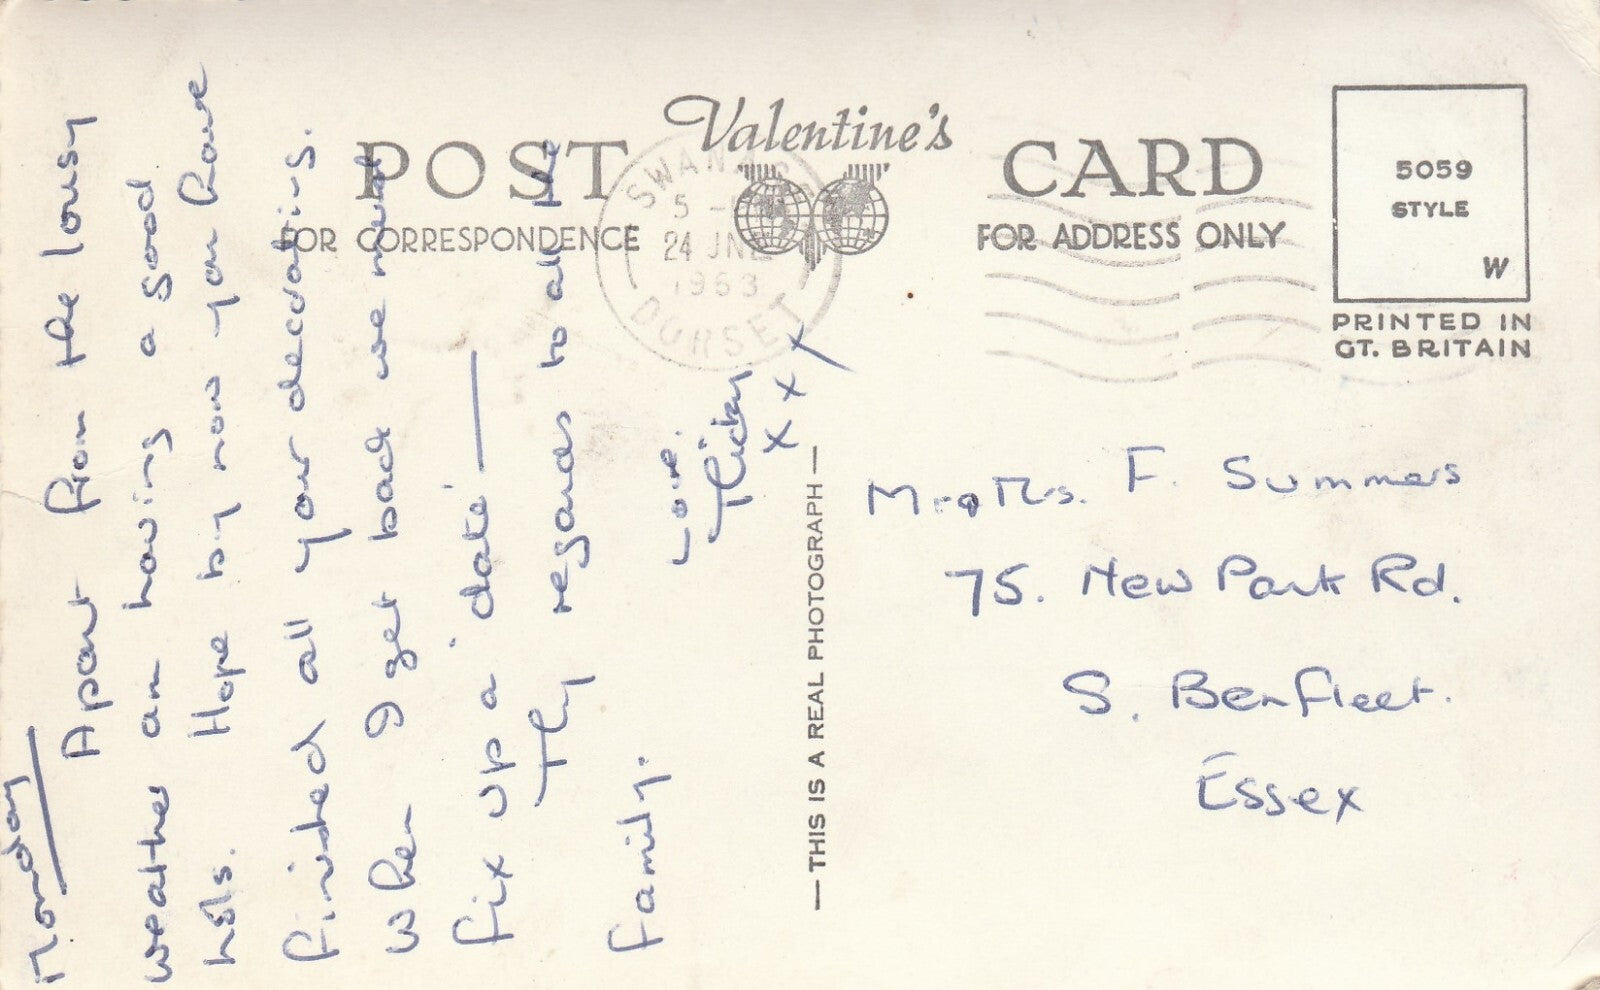 POST Valentine's CARD
FOR CORRESPONDENCE
FOR ADDRESS ONLY
5059
STYLE
W
PRINTED IN
GT. BRITAIN
SWANAGE
5 -
24 JNE
1963
DORSET
Monday
Apart from the lousy
weather am having a good
hols. Hope by now you have
finished all your decorating.
When I get back we must
fix up a 'date'
My regards to all the
family.
Love.
Ricky
x x x
— THIS IS A REAL PHOTOGRAPH —
Mr & Mrs. F. Summers
75. New Park Rd.
S. Benfleet.
Essex